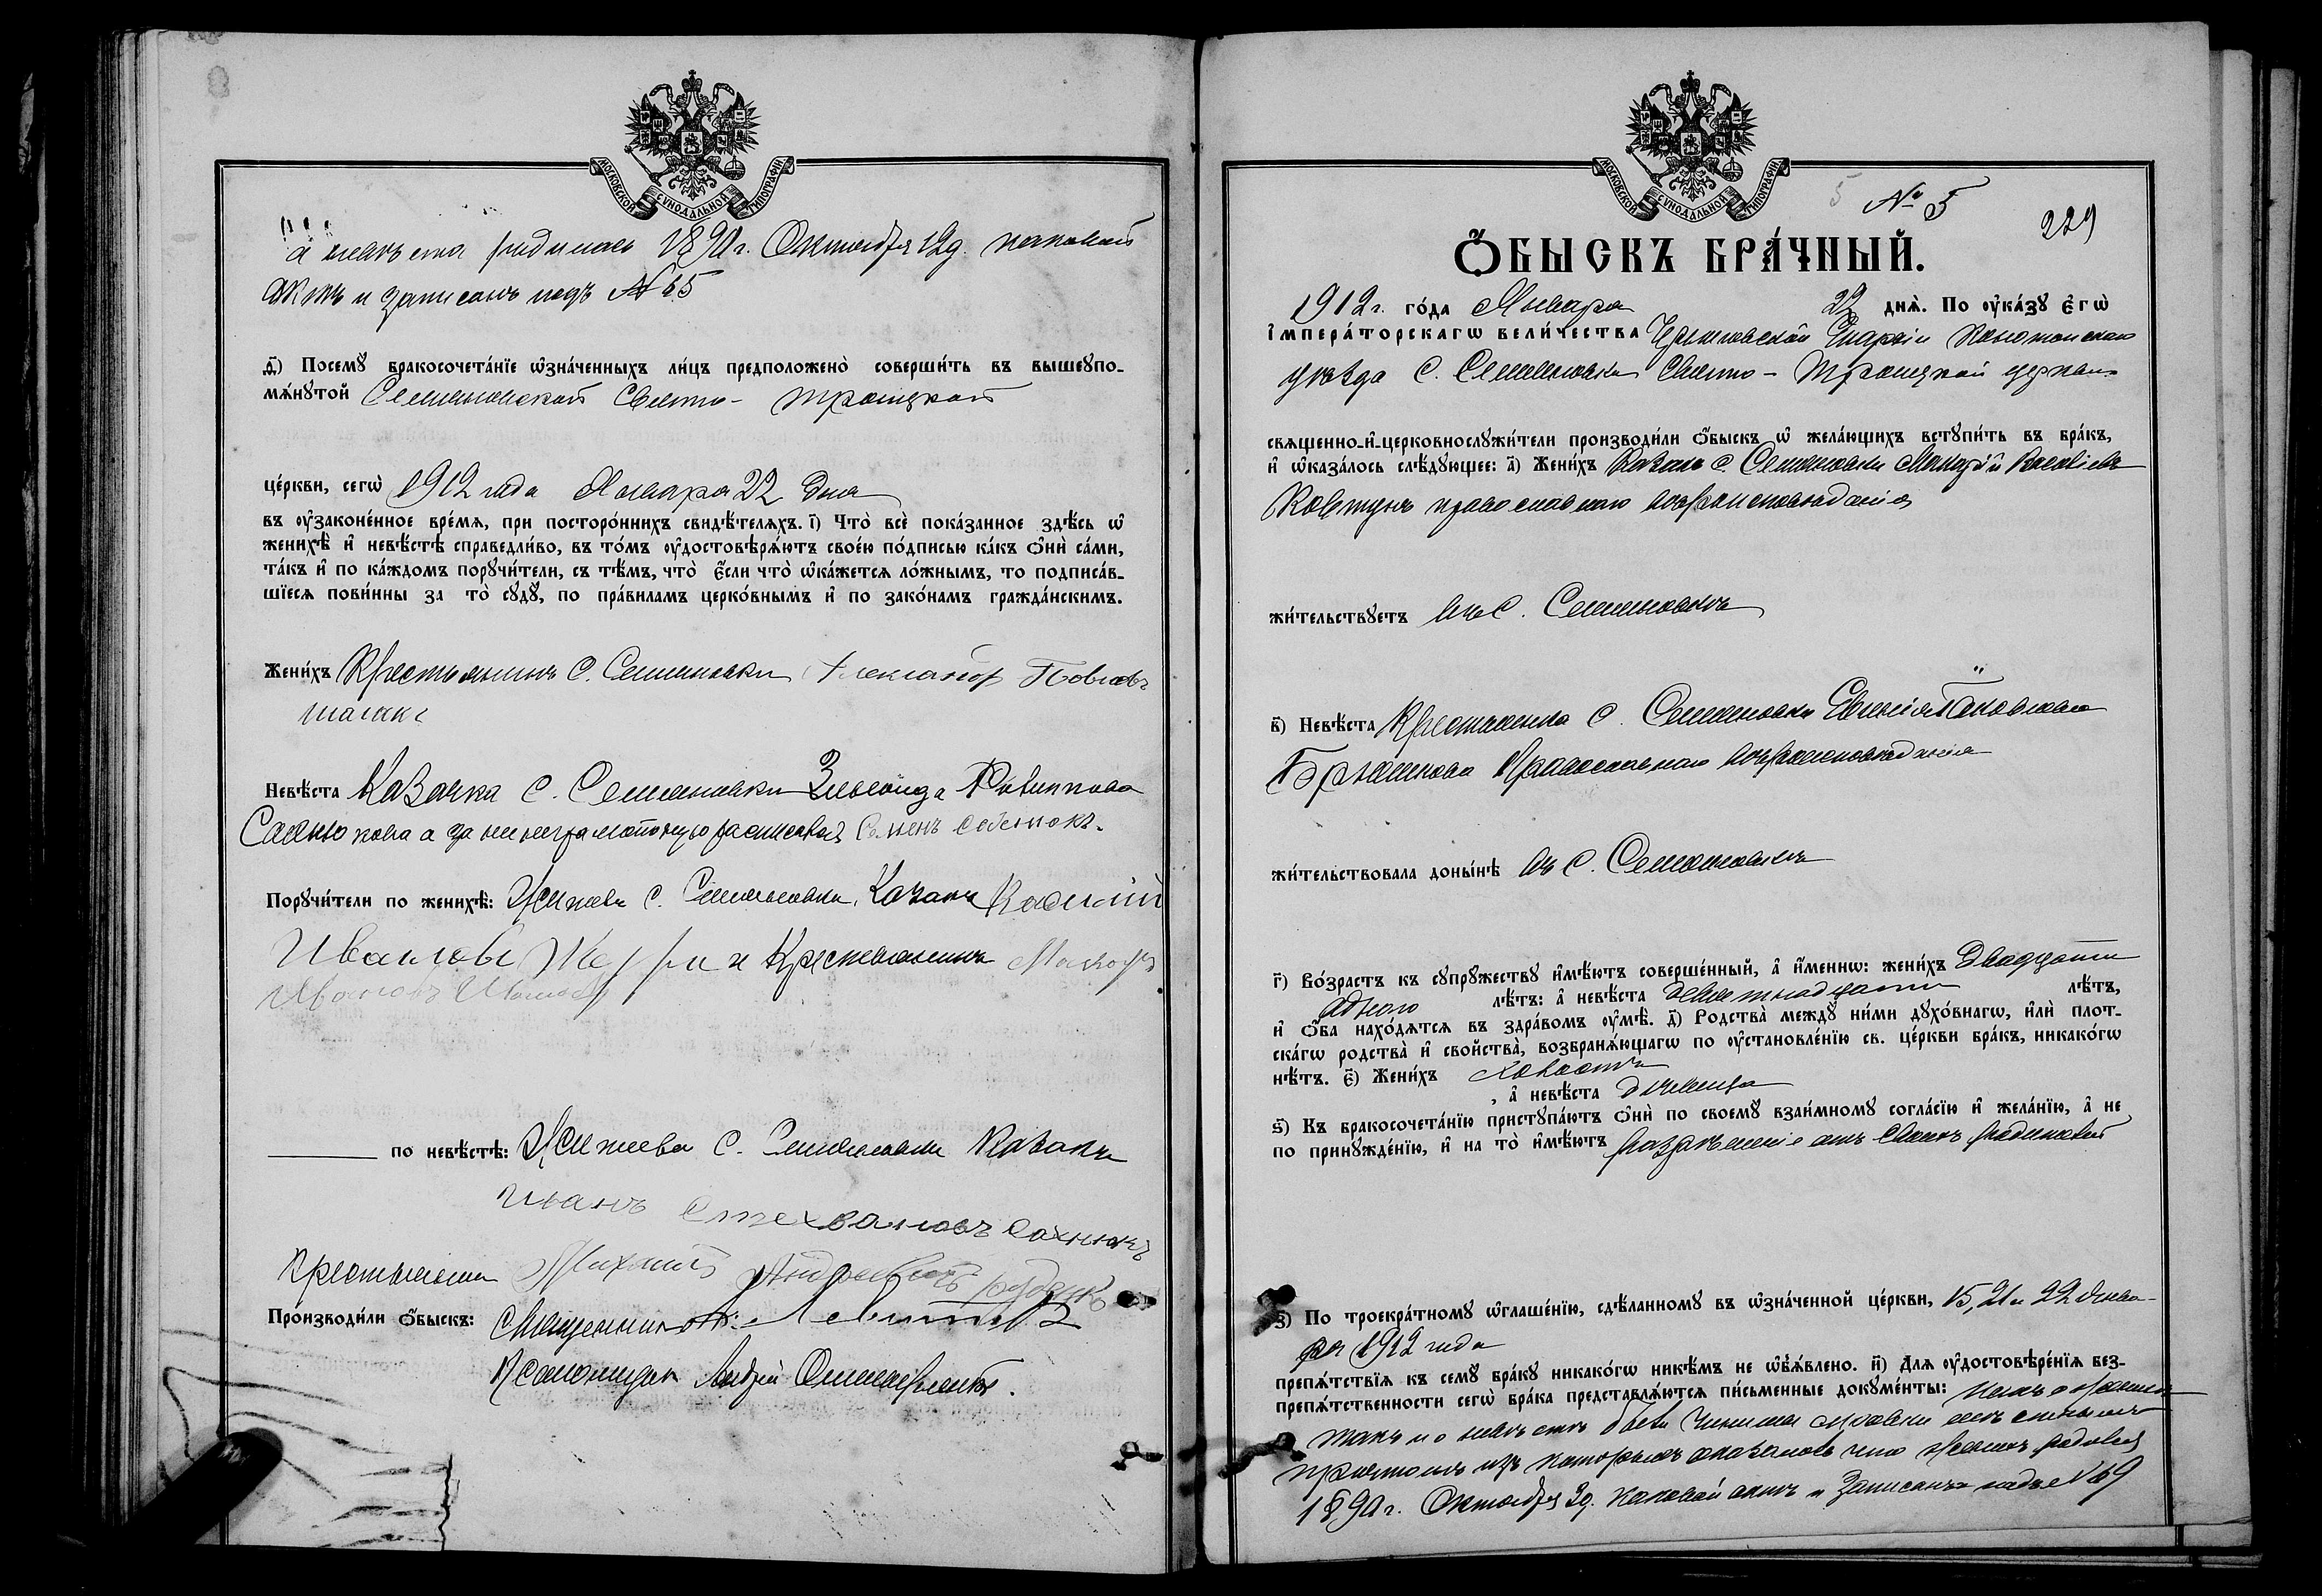 МОСКОВСКОЙ СУНОДАЛЬНОЙ ТИПОГРАФІИ
а невѣста родилась 1890 г. Октября 12 д. каковый
актъ и записанъ подъ № 65
д҃) Посемꙋ бракосочета́нїе ѡзна́ченныхъ ли́цъ предположено̀ соверши́ть въ вышеупо-
мѧ́нꙋтой Семеновской Свято- Троицкой
це́ркви, сегѡ̀ 1912 года Января 22 дня
въ оу҆законе́нное вре́мѧ, при посторо́ннихъ свидѣ́телѧхъ. і҃) Что̀ всѐ пока́занное здѣ́сь ѡ҆
женихѣ̀ и҆ невѣ́стѣ справедли́во, въ то́мъ оу҆достовѣрѧ́ютъ свое́ю по́дписью ка́къ ѻ҆нѝ са́ми,
та́къ и҆ по ка́ждомъ порꙋчи́тели, съ тѣ́мъ, что̀ є҆́сли что̀ ѡ҆ка́жетсѧ ло́жнымъ, то подписа́в-
шїесѧ пови́нны за то̀ сꙋдꙋ̀, по пра́виламъ церко́внымъ и҆ по зако́намъ гражда́нскимъ.
Жени́хъ Крестьянинъ с. Семеновки Александр Повловъ
Невѣ́ста Казачка с. Семеновки Зиновида Филиппова
а за неграмотную росписался Семенъ
Порꙋчи́тели по женихѣ̀: Жители с. Семеновки, Казакъ Василій
Ивановъ и Крестьянинъ
Ивановъ
по невѣ́стѣ: Жители с. Семеновки Казакъ
Иванъ Стехвановъ Сахнюкъ
Крестьянинъ Михаилъ Андреевъ
Про́изводи́ли ѻ҆́быскъ: Священникъ Левитскій
Псаломщикъ Андрей
МОСКОВСКОЙ СУНОДАЛЬНОЙ ТИПОГРАФІИ
5 № 5
229
Ѻ҆́БЫСКЪ БРА́ЧНЫЙ.
1912 г. го́да Января 22 днѧ̀. По оу҆ка́зꙋ Є҆гѡ̀
І҆мпера́торскагѡ Вели́чества Черниговской Епархіи Конотопскаго
уѣзда с. Семеновки Свято - Троицкой церкви
свѧщенно-и҆-церковнослꙋжи́тели производи́ли ѻ҆́быскъ ѡ҆ жела́ющихъ встꙋпи́ть въ бра́къ,
и҆ ѡ҆каза́лось слѣ́дꙋющее: а҃) Жени́хъ Казакъ с. Семеновки Макарій
Ковтунъ православнаго вѣроисповѣданія
жи́тельствꙋетъ въ с. Семеновкѣ
в҃) Невѣ́ста Крестьянка с. Семеновки Евгенія Яковлева
православнаго вѣроисповѣданія
жи́тельствовала доны́нѣ въ с. Семеновкѣ
г҃) Во́зрастъ къ сꙋпрꙋ́жествꙋ и҆мѣ́ютъ соверше́нный, а҆ и҆́меннѡ: жени́хъ двадцати
одного лѣ́тъ: а҆ невѣ́ста девятнадцати лѣ́тъ,
и҆ ѻ҆́ба нахо́дѧтсѧ въ здра́вомъ оу҆мѣ̀. д҃) Родства̀ междꙋ̀ ни́ми дꙋхо́внагѡ, и҆лѝ плот-
ска́гѡ родства̀ и҆ сво́йства̀, возбранѧ́ющагѡ по оу҆становле́нїю св. це́ркви бра́къ, никако́гѡ
нѣ́тъ. є҃) Жени́хъ холостъ
, а҆ невѣ́ста дѣвица
ѕ҃) Къ бракосочета́нїю пристꙋпа́ютъ ѻ҆нѝ по своемꙋ̀ взаи́мномꙋ согла́сїю и҆ жела́нїю, а҆ не
по принꙋжде́нїю, и҆ на то̀ и҆мѣ́ютъ разрѣшеніе отъ своихъ родителей
з҃) По троекра́тномꙋ ѡ҆глаше́нїю, сдѣ́ланномꙋ въ ѡ҆зна́ченной це́ркви, 15, 21 и 22 Янва-
ря 1912 года
препѧ́тствїѧ къ семꙋ̀ бра́кꙋ никако́гѡ никѣ́мъ не ѡ҆б̾ѧ́влено. и҃) Длѧ оу҆достовѣре́нїѧ без-
препѧ́тственности сегѡ̀ бра́ка представлѧ́ютсѧ пи́сьменные докꙋме́нты: какъ о женихѣ
такъ и о невѣстѣ были чинимы справки мѣстнымъ
причтомъ изъ которыхъ оказалось что женихъ родился
1890 г. Октября 3 д. каковой актъ и записанъ подъ № 69